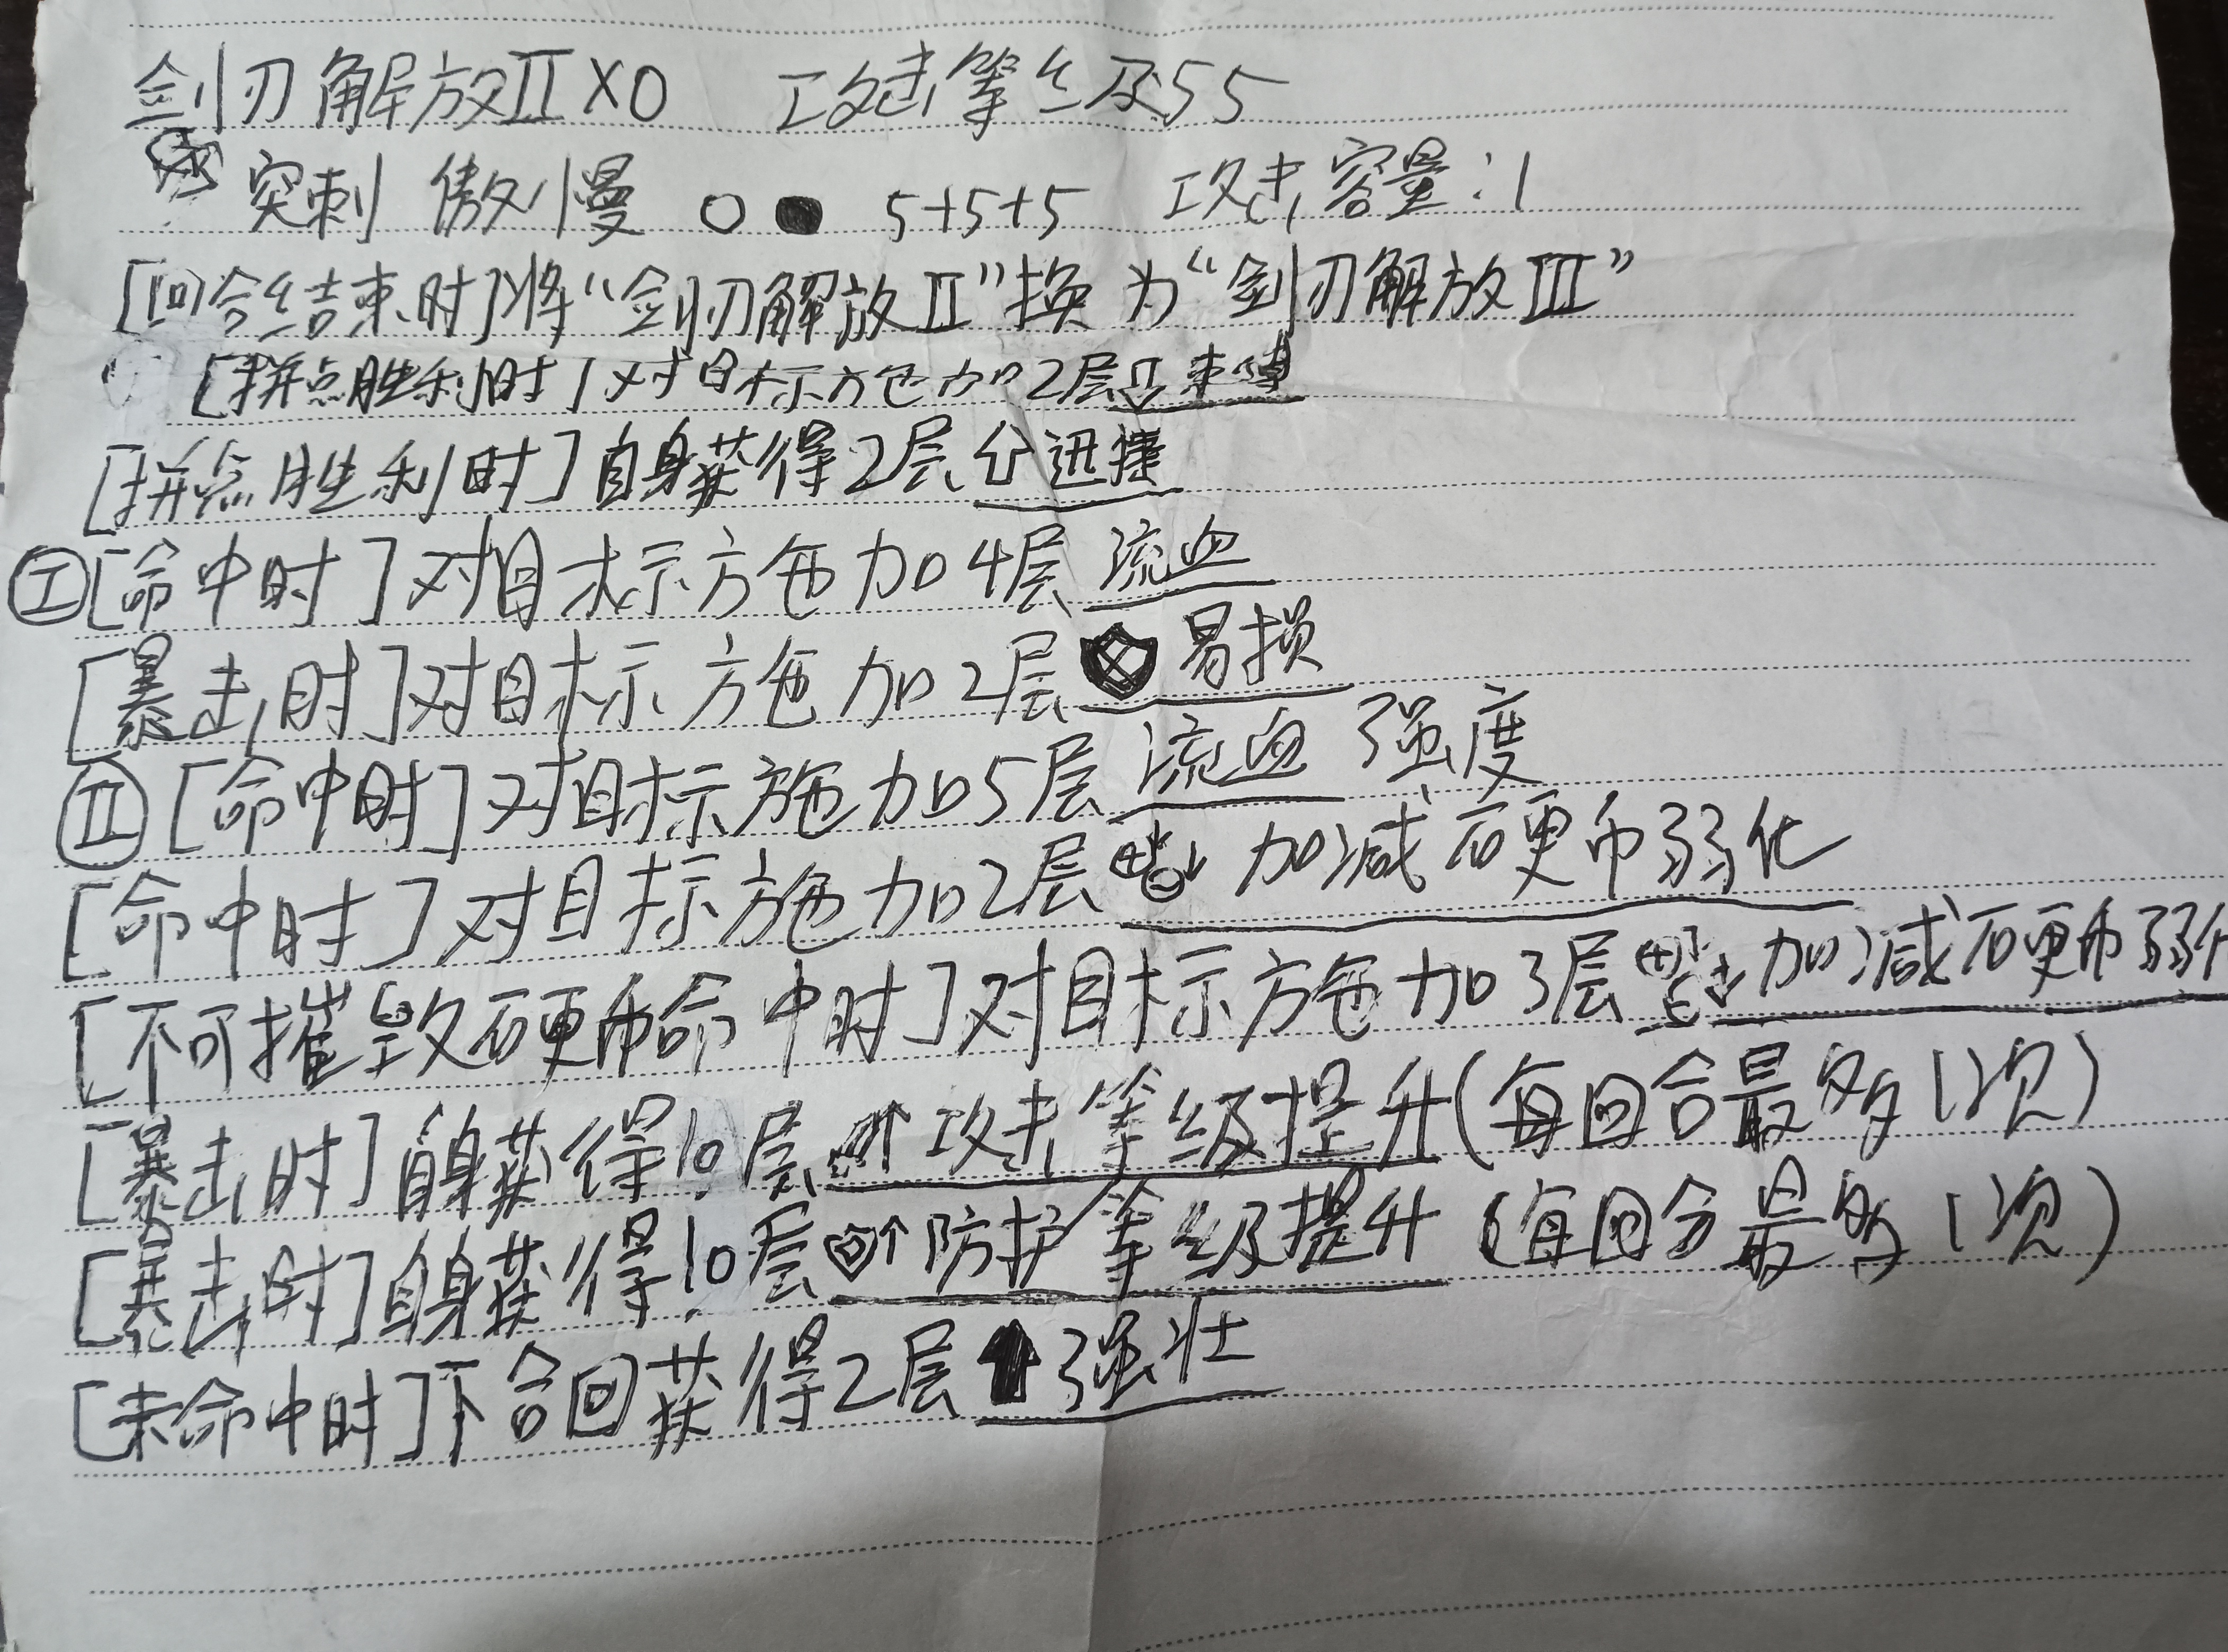 剑刃解放II×0 攻击等级55
突刺 傲慢 ○ ● 5+5+5 攻击容量:1
[回合结束时]将“剑刃解放II”换为“剑刃解放III”
[拼点胜利时]对目标施加2层⇩束缚
[拼点胜利时]自身获得2层⇧迅捷
Ⓘ[命中时]对目标施加4层流血
[暴击时]对目标施加2层易损
Ⅱ[命中时]对目标施加5层流血强度
[命中时]对目标施加2层加减硬币弱化
[不可摧毁硬币命中时]对目标施加3层加减硬币弱化
[暴击时]自身获得10层↑攻击等级提升(每回合最多1次)
[暴击时]自身获得10层↑防护等级提升(每回合最多1次)
[未命中时]下合回获得2层⬆强壮